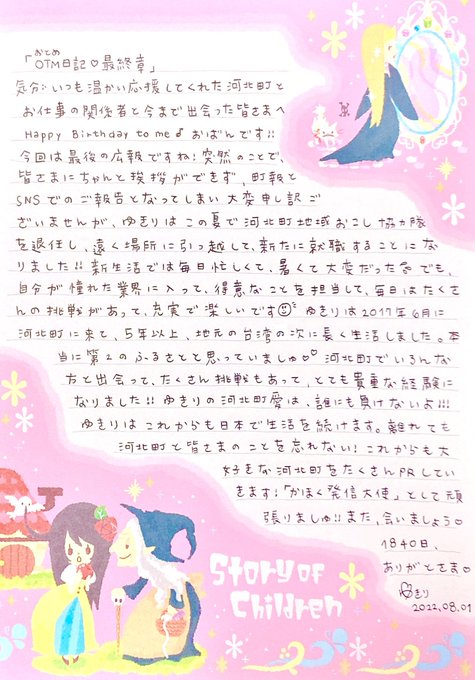 おとめ
「OTM日記♡最終章」
気分いつも温かい応援してくれた河北町と
お仕事の関係者と今まで出会った皆さまへ
Happy Birthday to me♪おばんです!!
今回は最後の広報ですね！突然のことで、
皆さまにちゃんと挨拶ができず、町報と
SNSでのご報告となってしまい大変申し訳ご
ざいませんが、ゆきりはこの夏で河北町地域おこし協力隊
を退任し、遠く場所に引っ越して、新たに就職することにな
りました!!新生活では毎日忙しくて、暑くて大変だったけでも、
自分が憧れた業界に入って、得意なことを担当して、毎日はたくさ
んの挑戦があって、充実で楽しいです ゆきりは2017年6月に
河北町に来て、5年以上、地元の台湾の次に長く生活しました。本
当に第2のふるさとと思っていましゅ♡♡河北町でいろんな
方と出会って、たくさん挑戦もあって、とても貴重な経験に
なりました!!ゆきりの河北町愛は、誰にも負けないよ!!!
ゆきりはこれからも日本で生活を続けます。離れても
河北町と皆さまのことを忘れない！これからも大
好きな河北町をたくさんPRしてい
きます！「かほく発信大使」として頑
張りましゅ!!また、会いましょう♡
1840日、
ありがとさま♡
ゆきり
2022.08.01
Story of
Children